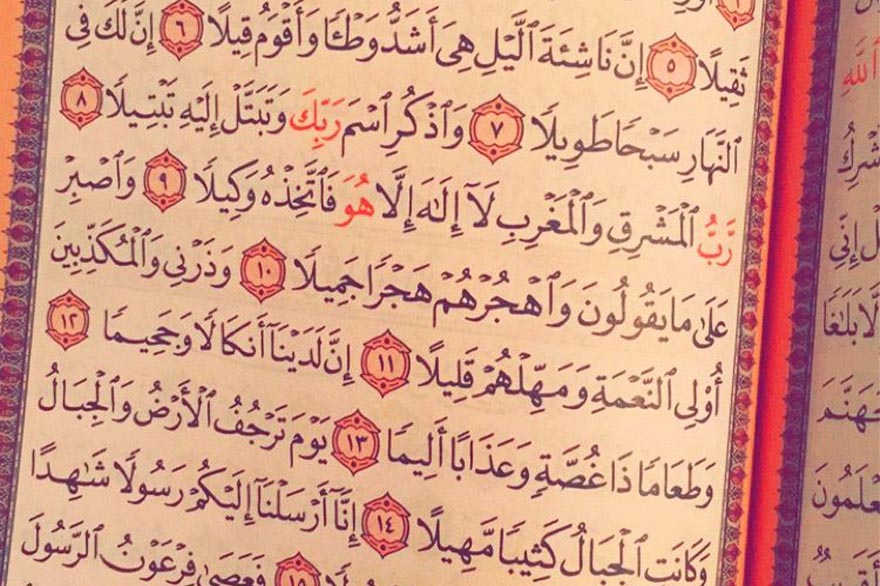 ثَقِيلًا ٥ إِنَّ نَاشِئَةَ ٱلَّيۡلِ هِيَ أَشَدُّ وَطۡـٔٗا وَأَقۡوَمُ قِيلًا ٦ إِنَّ لَكَ فِي
ٱلنَّهَارِ سَبۡحٗا طَوِيلٗا ٧ وَٱذۡكُرِ ٱسۡمَ رَبِّكَ وَتَبَتَّلۡ إِلَيۡهِ تَبۡتِيلٗا ٨
رَّبُّ ٱلۡمَشۡرِقِ وَٱلۡمَغۡرِبِ لَآ إِلَٰهَ إِلَّا هُوَ فَٱتَّخِذۡهُ وَكِيلٗا ٩ وَٱصۡبِرۡ
عَلَىٰ مَا يَقُولُونَ وَٱهۡجُرۡهُمۡ هَجۡرٗا جَمِيلٗا ١٠ وَذَرۡنِي وَٱلۡمُكَذِّبِينَ
أُوْلِي ٱلنَّعۡمَةِ وَمَهِّلۡهُمۡ قَلِيلًا ١١ إِنَّ لَدَيۡنَآ أَنكَالٗا وَجَحِيمٗا ١٢
وَطَعَامٗا ذَا غُصَّةٖ وَعَذَابًا أَلِيمٗا ١٣ يَوۡمَ تَرۡجُفُ ٱلۡأَرۡضُ وَٱلۡجِبَالُ
وَكَانَتِ ٱلۡجِبَالُ كَثِيبٗا مَّهِيلًا ١٤ إِنَّآ أَرۡسَلۡنَآ إِلَيۡكُمۡ رَسُولٗا شَٰهِدًا
١٥ فَعَصَىٰ فِرۡعَوۡنُ ٱلرَّسُولَ
ٱللَّهِ
إِنِّي
بَلَٰغٗا
جَهَنَّمَ